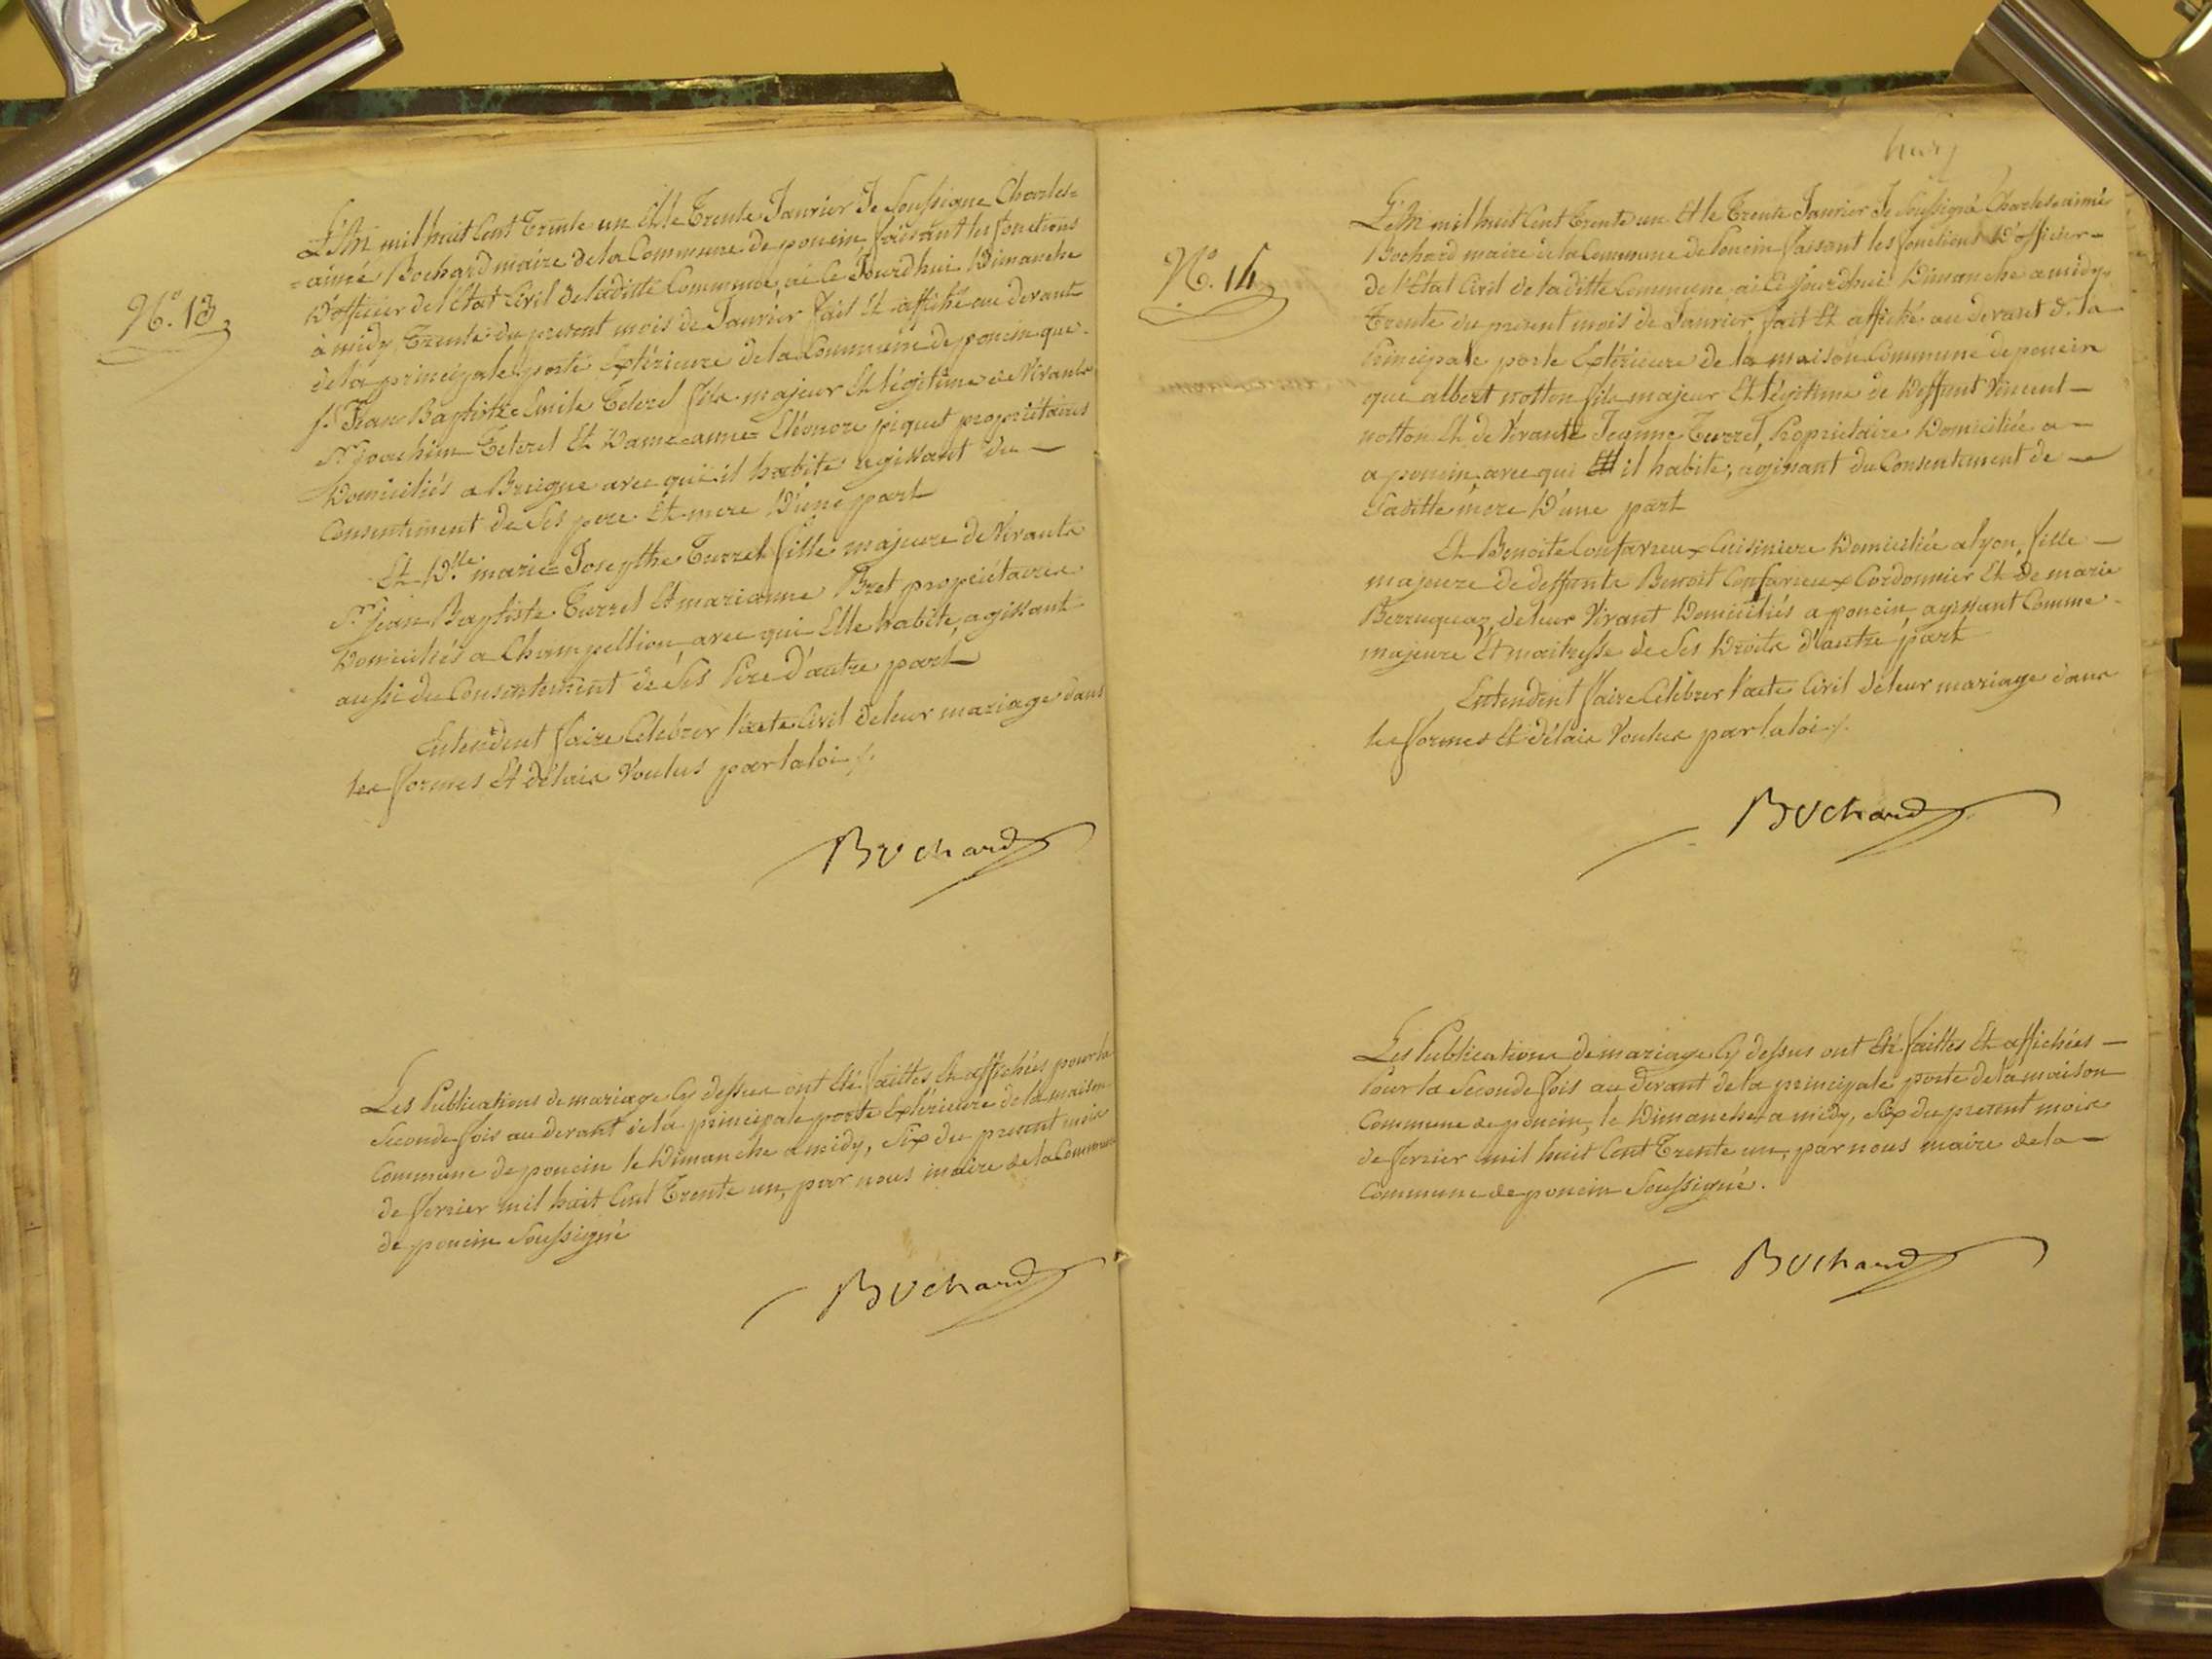 N.º 13
L'An mil huit Cent Trente un Et le Trente Janvier Je Soussigné Charles=
=aimé Bochard maire de la Commune de poncin faisant les fonctions
D'officier de l'Etat Civil de laditte Commune, ai Ce Jourdhui Dimanche
à midy, Trente du present mois de Janvier fait Et affiché au devant
de la principale porte Extérieure de la Commune de poncin que
sr. Jean Baptiste Emile Teterel fils majeur Et légitime de Vivants
Sr. Joachim Teterel Et Dame anne Eléonore piquet propriétaires
Domiciliés a avec qui il habite agissant du
Consentement de Ses pere Et mere D'une part
Et Dlle marie=Josephte Turrel fille majeure de Vivants
Sr. Jean Baptiste Turrel Et marianne Bret propriétaires
Domiciliés a avec qui Elle habite, agissant
aussi du Consentement de Ses Pere D'autre part
Entendent faire Celebrer l'acte Civil de leur mariage dans
les formes Et délais Voulus par la loi ./.
BOchard
Les Publications de mariage Cy dessus ont Eté faittes Et affichées pour la
Seconde fois au devant de la principale porte Extérieure de la maison
Commune de poncin le Dimanche a midy, Six du present mois
de fevrier mil huit Cent Trente un, par nous maire de la Commune
de poncin Soussigné
BOchard
N.º 14
L'An mil huit Cent Trente un Et le Trente Janvier Je Soussigné Charles=aimé
Bochard maire de la Commune de Poncin faisant les fonctions D'officier
de l'Etat Civil de laditte Commune, ai Ce jourdhui Dimanche a midy,
Trente du present mois de Janvier, fait Et affiché au devant de la
Principale porte Extérieure de la maison Commune de poncin
que albert notton fils majeur Et légitime de Deffunt Vincent
notton Et de Vivante Jeanne Turrel, Propriétaire Domiciliée a
a poncin, avec qui il habite, agissant du Consentement de
Saditte mere D'une part
Et Benoite Confavreux Cuisiniere Domiciliée a lyon, fille
majeure de deffunts Benoit Confavreux Cordonnier Et de marie
de leur Vivant Domiciliés a poncin, agissant Comme
majeure Et maitresse de Ses Droits D'autre part
Entendent faire Celebrer l'acte Civil de leur mariage dans
les formes Et délais Voulus par la loi ./.
BOchard
Les Publications de mariage Cy dessus ont Eté faittes Et affichées
Pour la Seconde fois au devant de la principale porte de la maison
Commune de poncin, le Dimanche a midy, Six du present mois
de fevrier mil huit Cent Trente un, par nous maire de la
Commune de poncin Soussigné.
BOchard